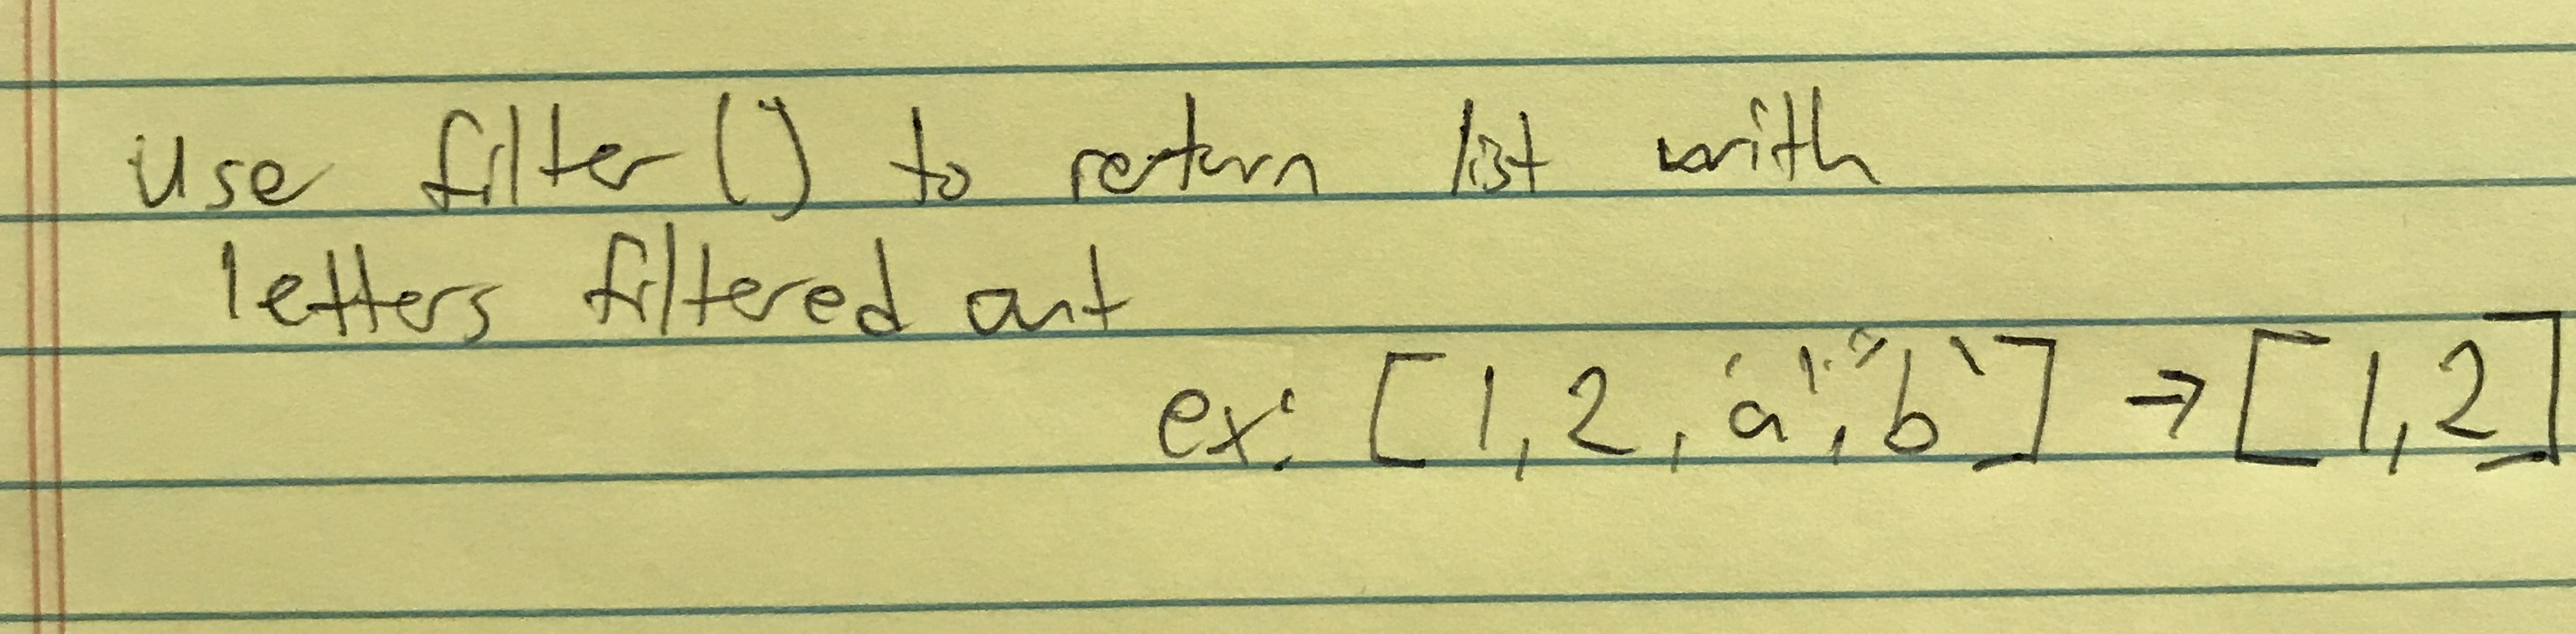 use filter() to return list with
letters filtered out
ex: [1,2,'a','b'] → [1,2]